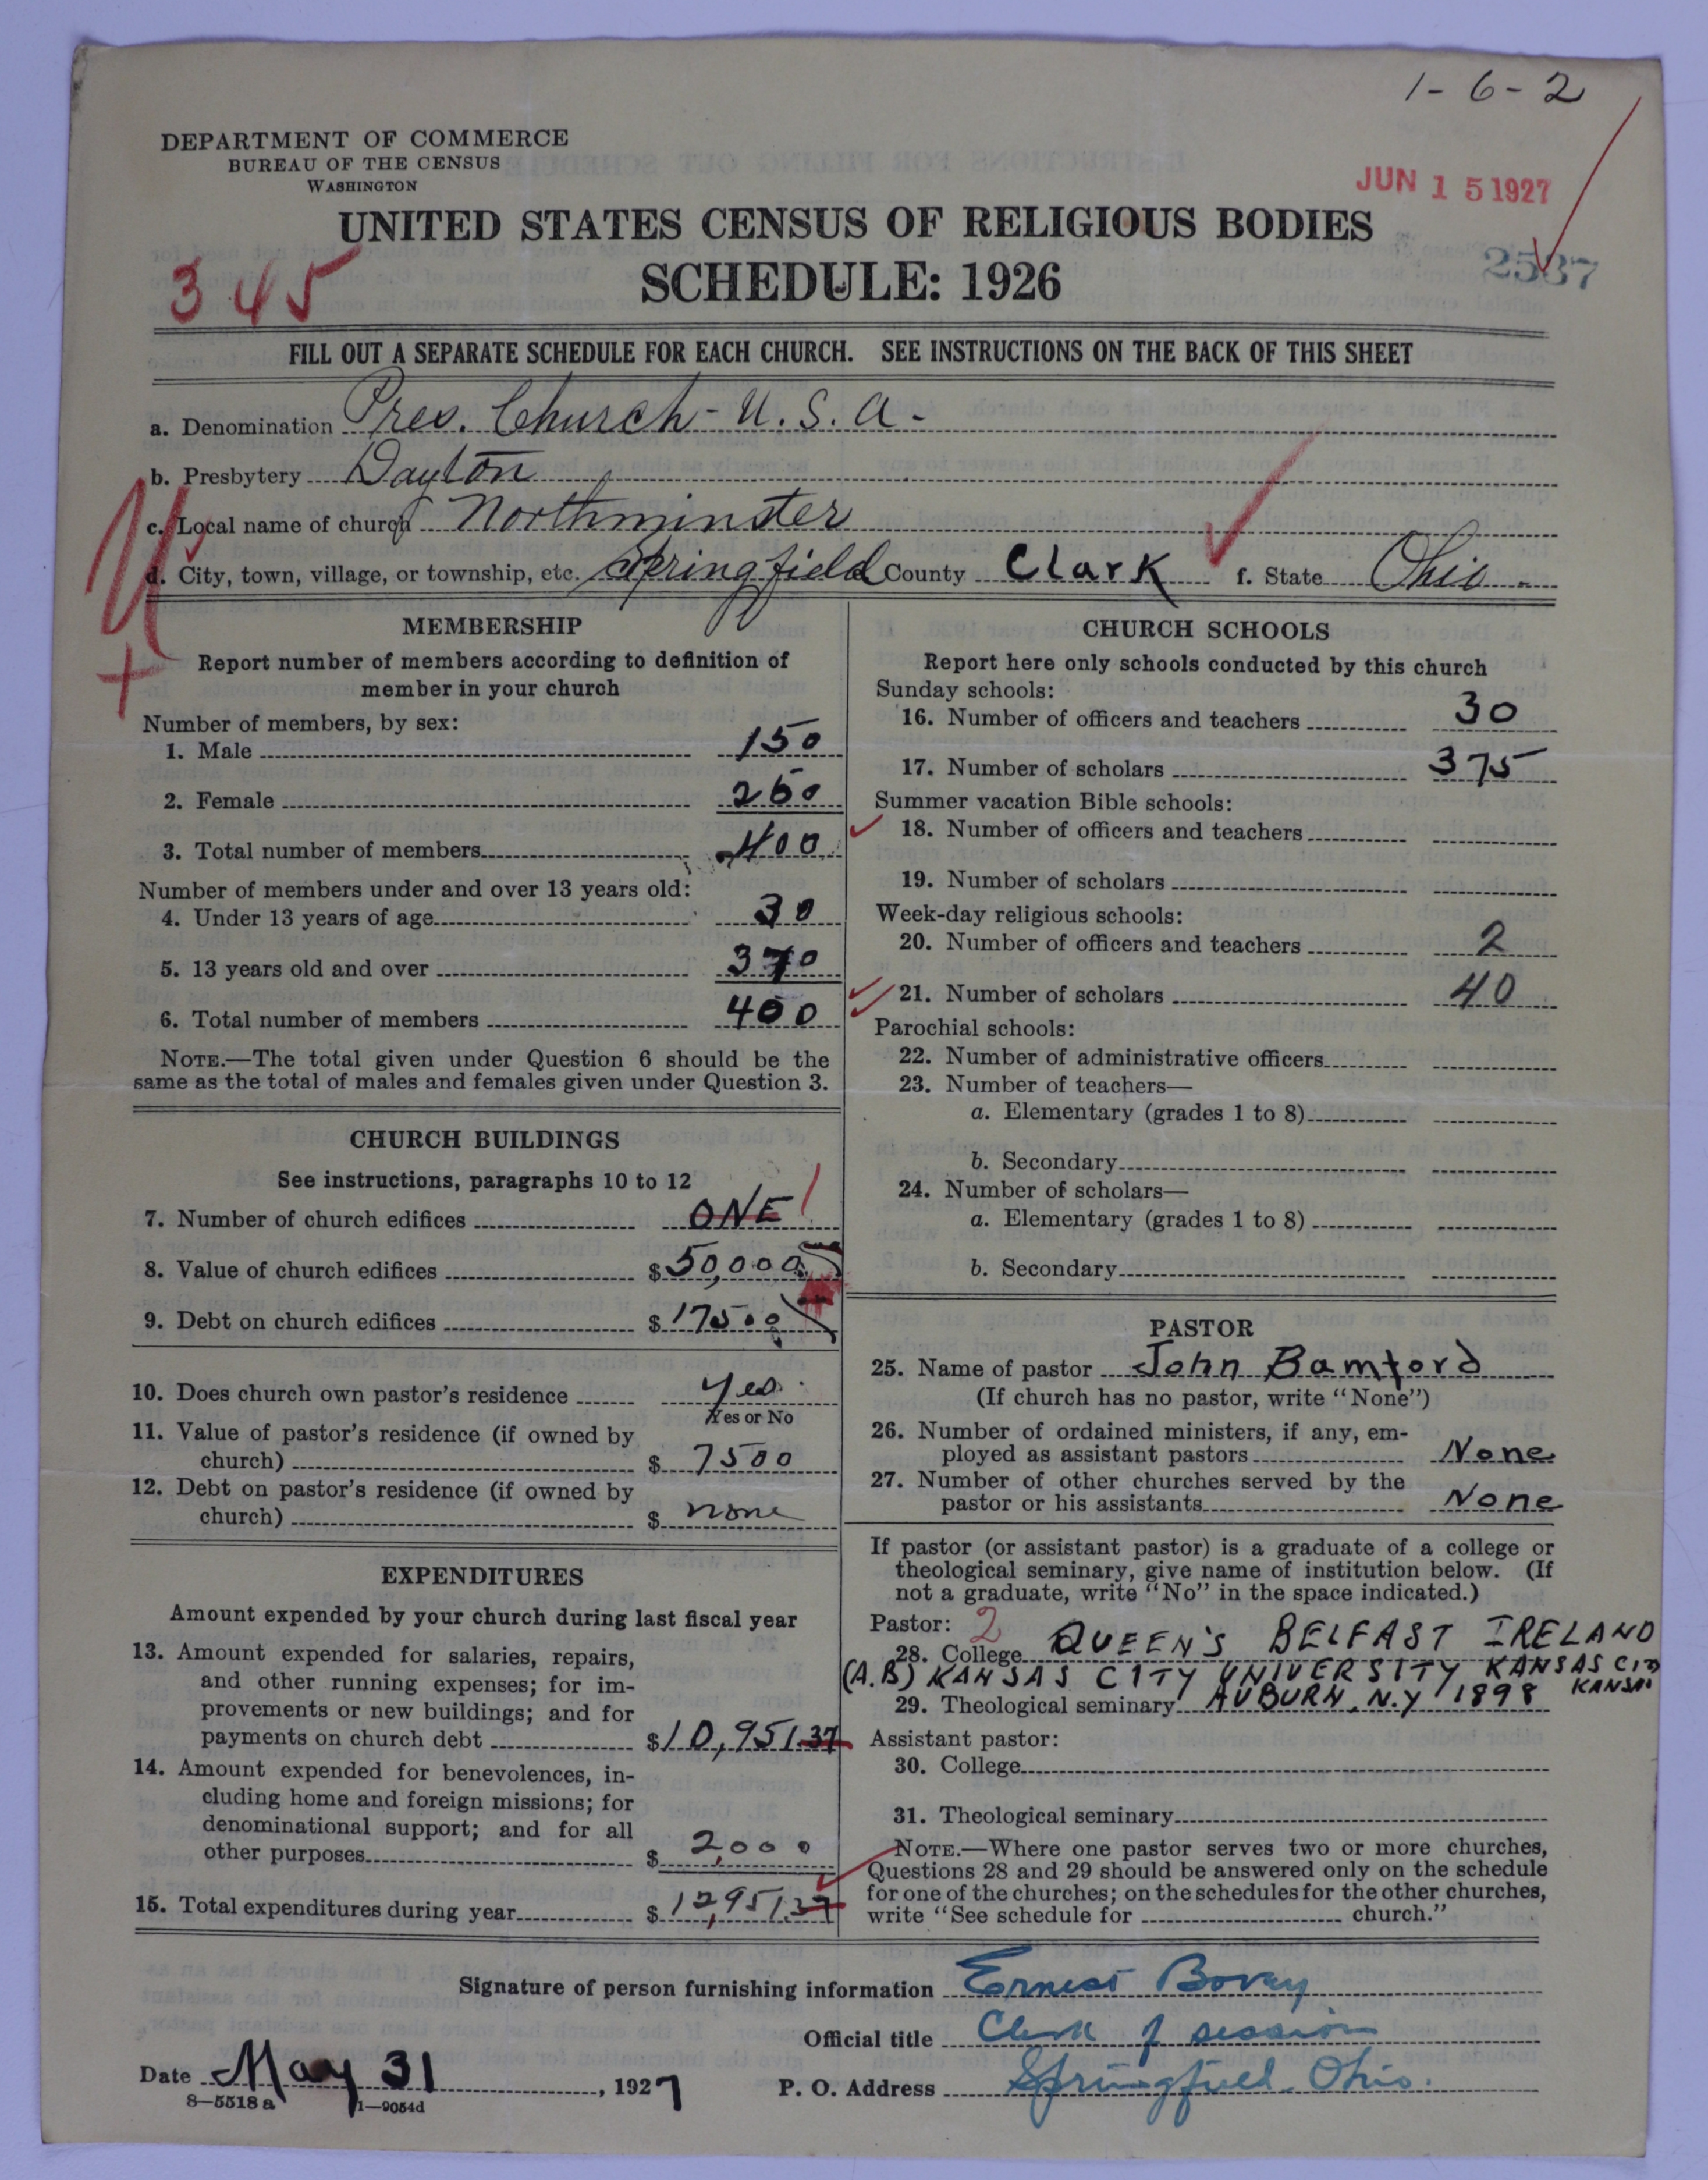 1-6-2
DEPARTMENT OF COMMERCE
BUREAU OF THE CENSUS
WASHINGTON
JUN 15 1927
UNITED STATES CENSUS OF RELIGIOUS BODIES
SCHEDULE: 1926
345
2537
FILL OUT A SEPARATE SCHEDULE FOR EACH CHURCH. SEE INSTRUCTIONS ON THE BACK OF THIS SHEET
a. Denomination Pres. Church - U.S.A-
b. Presbytery Dayton
c. Local name of church Northminster
d. City, town, village, or township, etc. Springfield County Clark f. State Ohio.
MEMBERSHIP
Report number of members according to definition of
member in your church
Number of members, by sex:
1. Male 150
2. Female 250
3. Total number of members 400
Number of members under and over 13 years old:
4. Under 13 years of age 30
5. 13 years old and over 370
6. Total number of members 400
NOTE.—The total given under Question 6 should be the
same as the total of males and females given under Question 3.
CHURCH BUILDINGS
See instructions, paragraphs 10 to 12
7. Number of church edifices ONE 1
8. Value of church edifices $50,000
9. Debt on church edifices $17500
10. Does church own pastor's residence Yes.
Yes or No
11. Value of pastor's residence (if owned by
church) $ 7500
12. Debt on pastor's residence (if owned by
church) $ none
EXPENDITURES
Amount expended by your church during last fiscal year
13. Amount expended for salaries, repairs,
and other running expenses; for im-
provements or new buildings; and for
payments on church debt $10,951.37
14. Amount expended for benevolences, in-
cluding home and foreign missions; for
denominational support; and for all
other purposes $ 2,000
15. Total expenditures during year $ 12,951.37
CHURCH SCHOOLS
Report here only schools conducted by this church
Sunday schools:
16. Number of officers and teachers 30
17. Number of scholars 375
Summer vacation Bible schools:
18. Number of officers and teachers
19. Number of scholars
Week-day religious schools:
20. Number of officers and teachers 2
21. Number of scholars 40
Parochial schools:
22. Number of administrative officers
23. Number of teachers—
a. Elementary (grades 1 to 8)
b. Secondary
24. Number of scholars—
a. Elementary (grades 1 to 8)
b. Secondary
PASTOR
25. Name of pastor John Bamford
(If church has no pastor, write "None")
26. Number of ordained ministers, if any, em-
ployed as assistant pastors None
27. Number of other churches served by the
pastor or his assistants None
If pastor (or assistant pastor) is a graduate of a college or
theological seminary, give name of institution below. (If
not a graduate, write "No" in the space indicated.)
Pastor: 2
28. College QUEEN'S BELFAST IRELAND
(A.B) KANSAS CITY UNIVERSITY KANSAS CITY
KANSAS
29. Theological seminary AUBURN, N.Y 1898
Assistant pastor:
30. College
31. Theological seminary
NOTE.—Where one pastor serves two or more churches,
Questions 28 and 29 should be answered only on the schedule
for one of the churches; on the schedules for the other churches,
write "See schedule for church."
Signature of person furnishing information Ernest Bovey
Official title Clerk of session
Date May 31, 1927 P. O. Address Springfield. Ohio.
8—5518 a 1—9054d